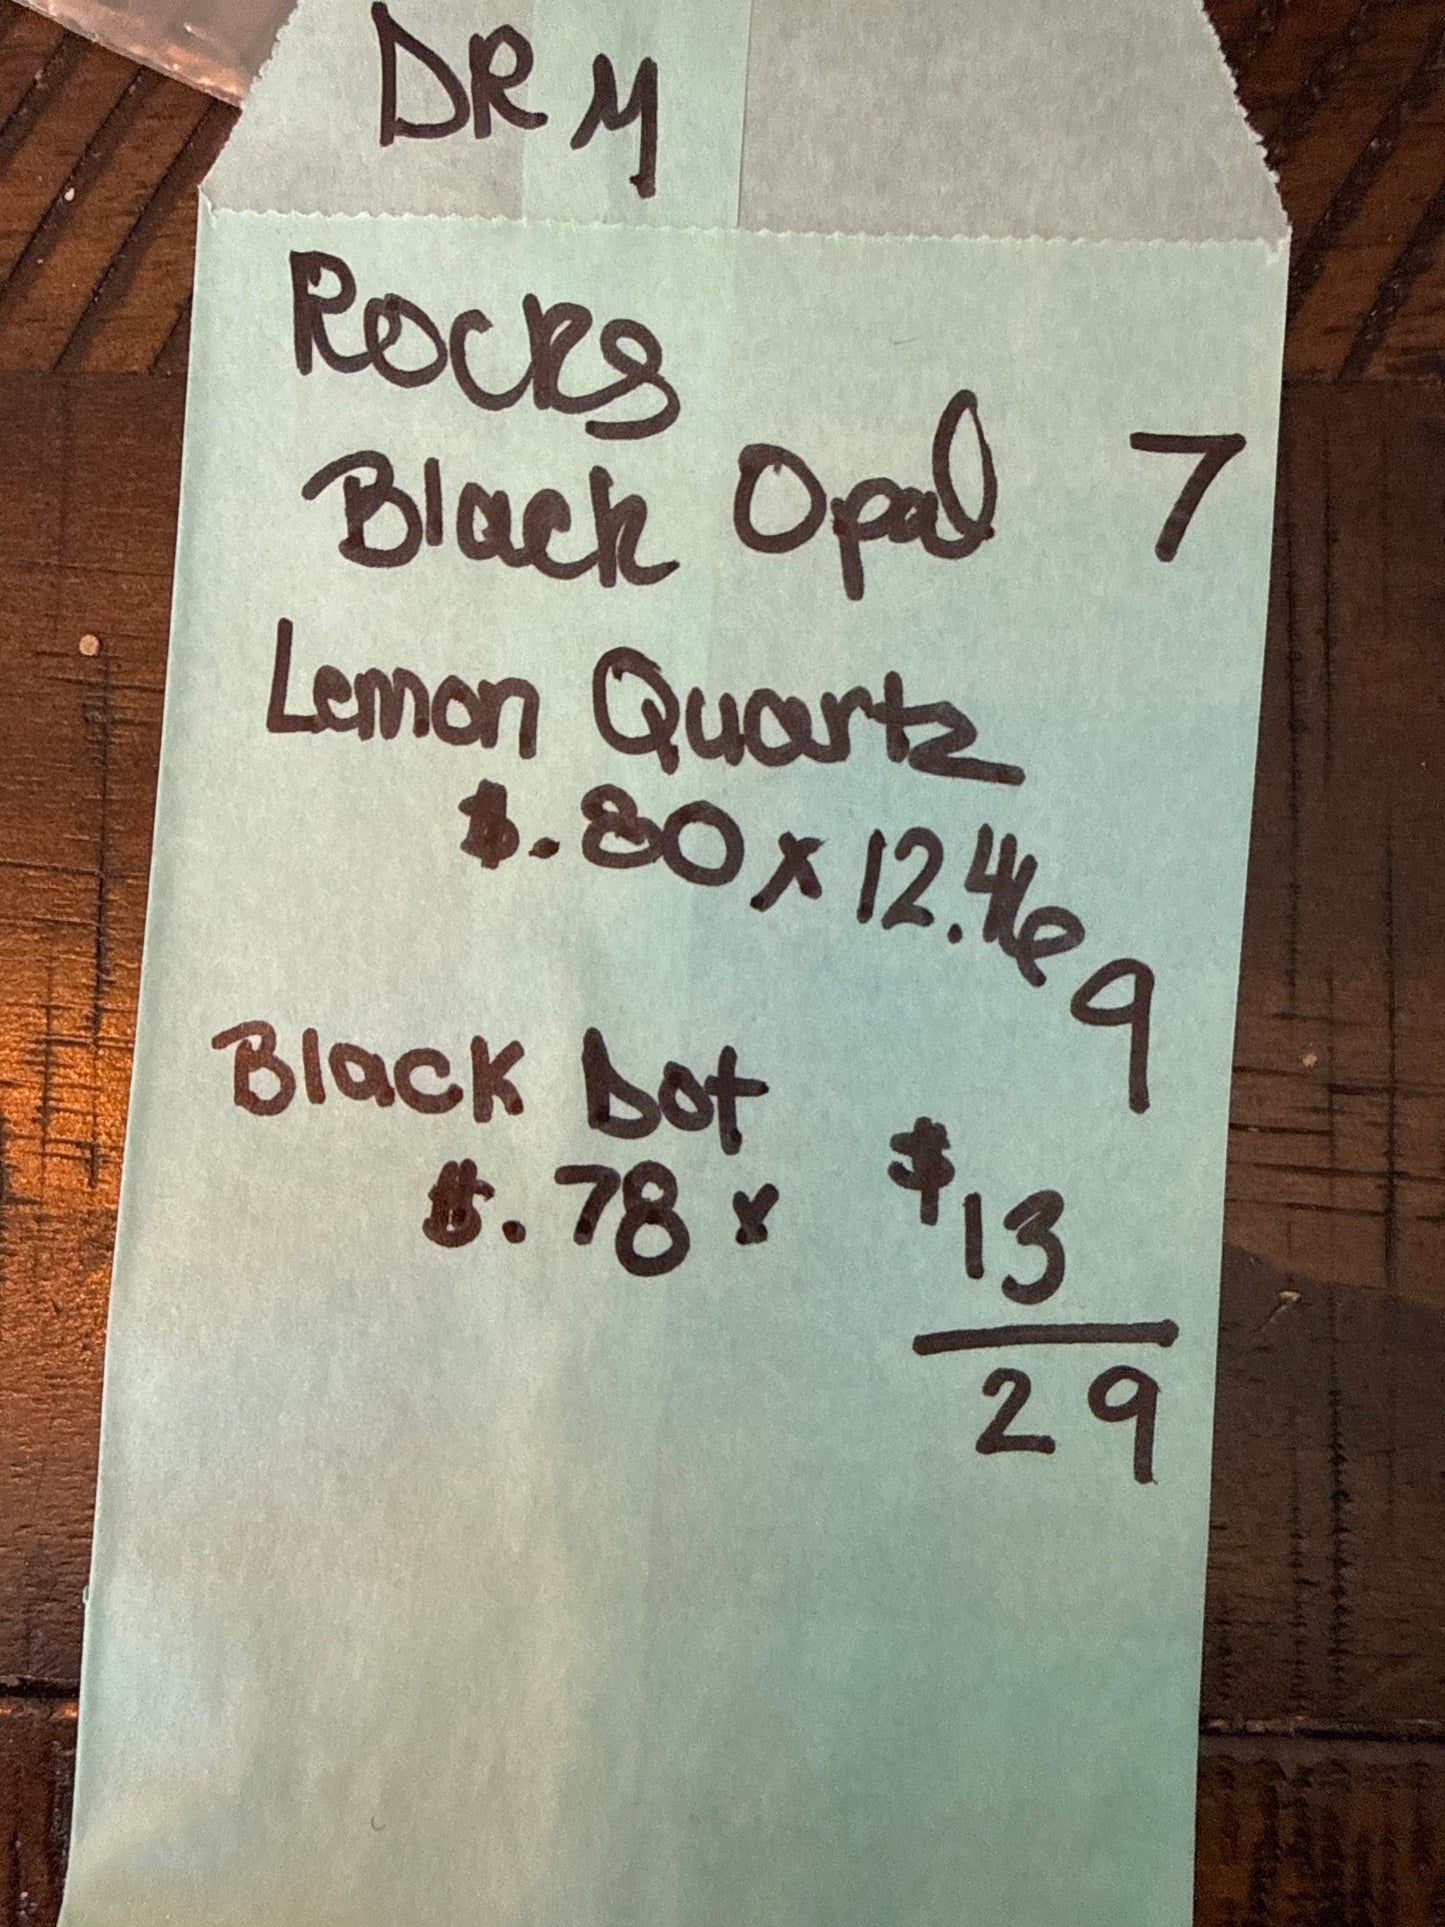 DR M
Rocks
Black Opal 7
Lemon Quartz
$.80 x 12.46
9
Black Dot
$.78 x $13
29